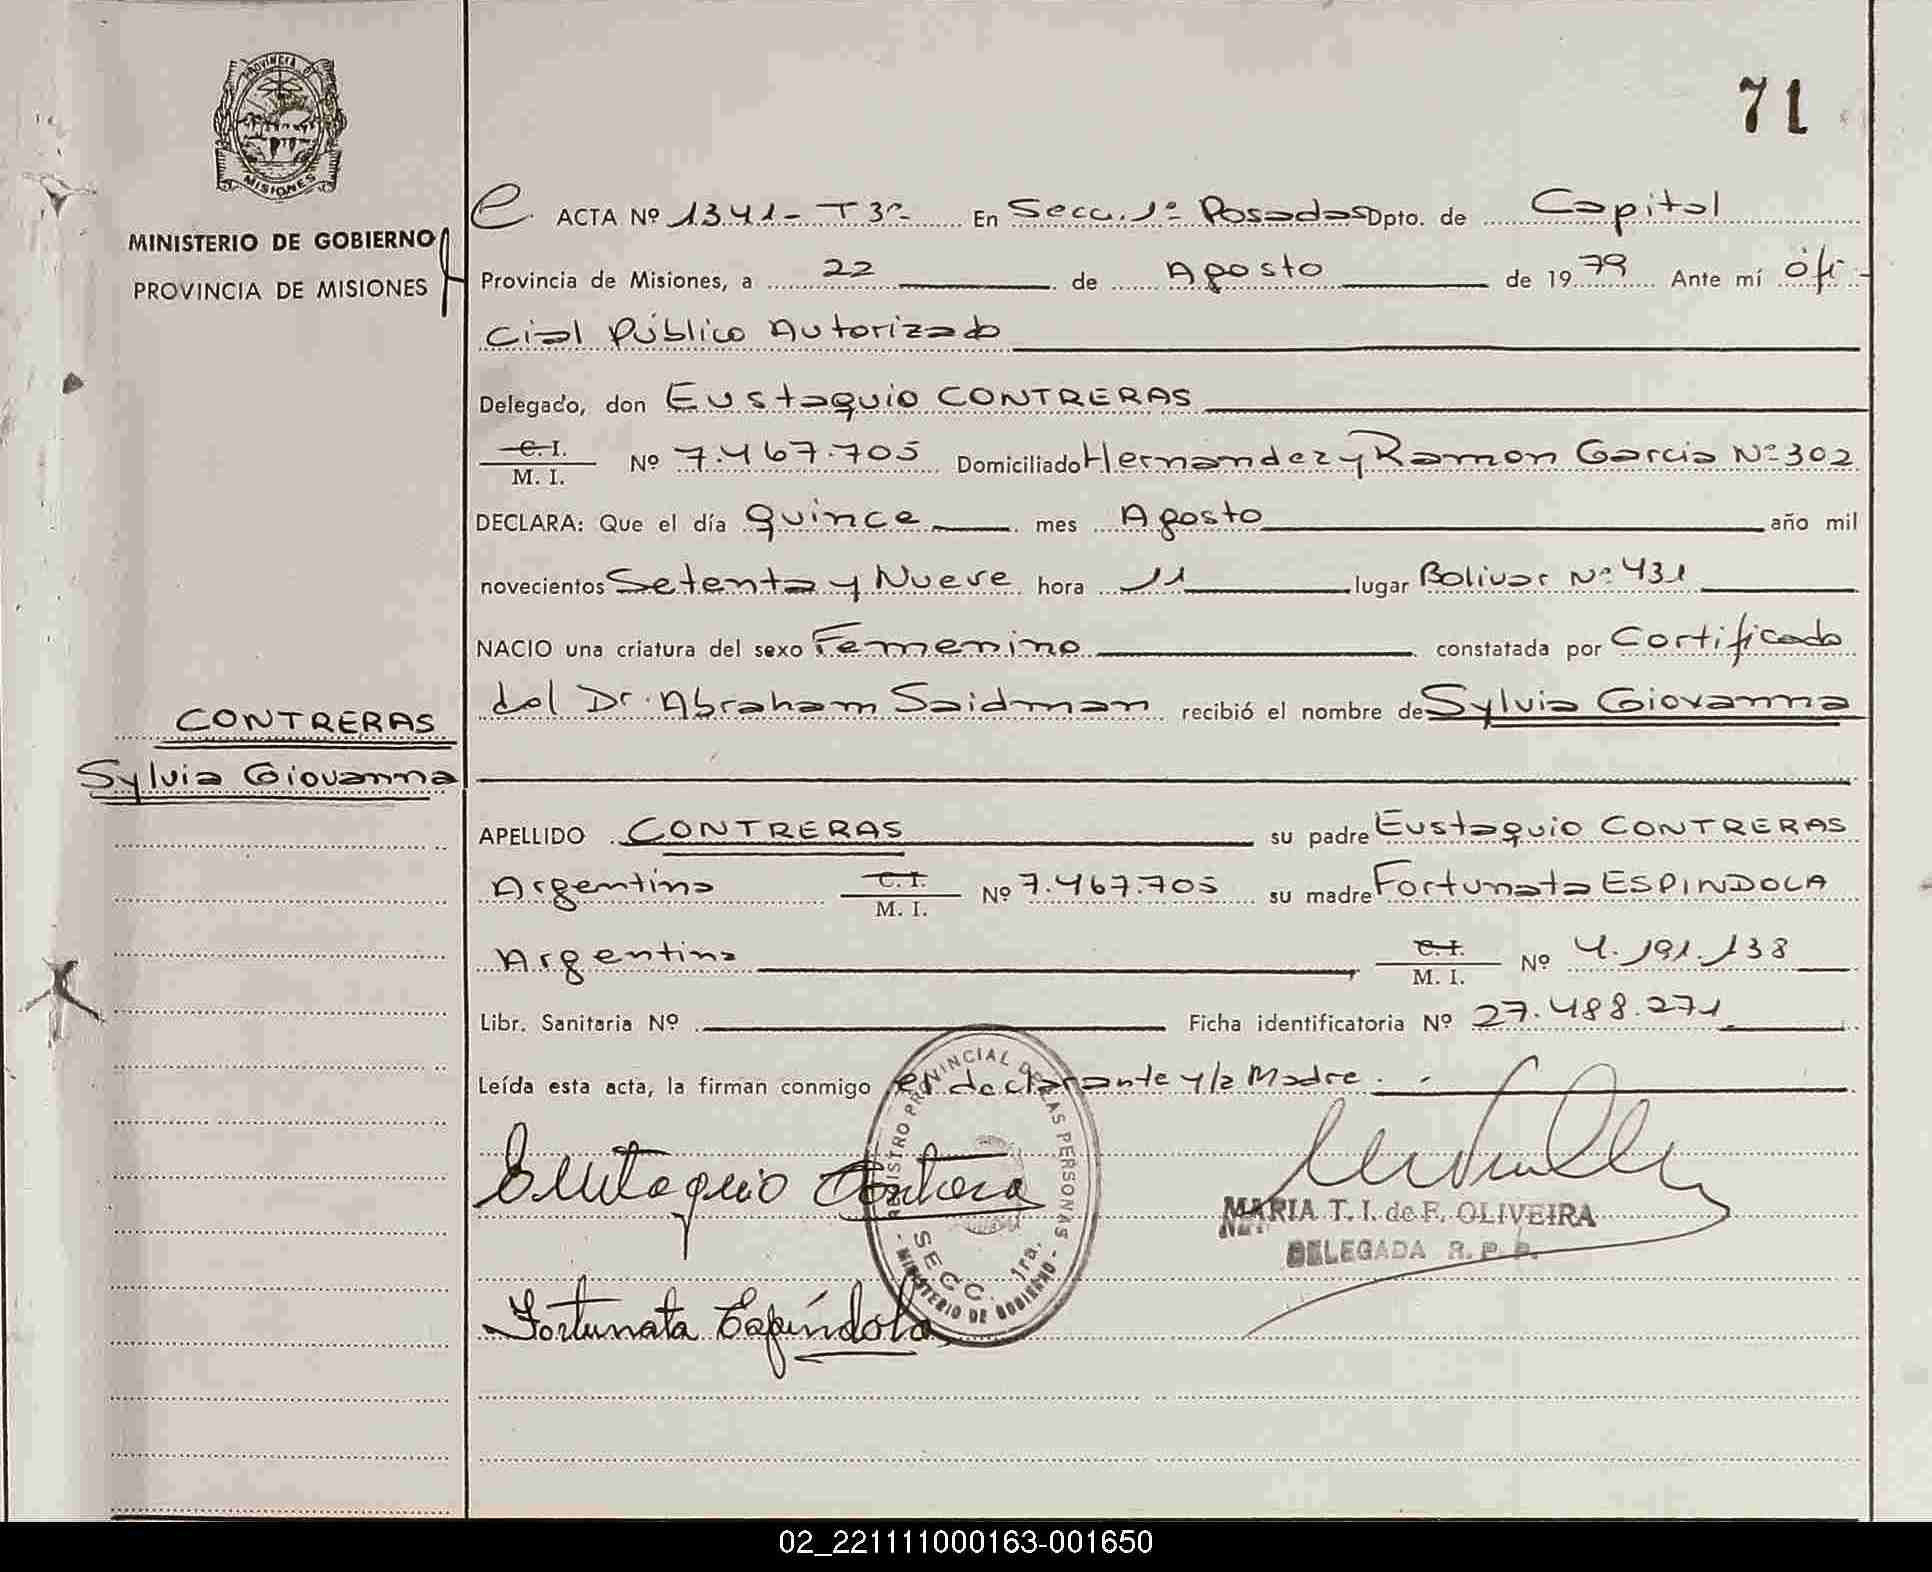 PROVINCIA D
MISIONES
MINISTERIO DE GOBIERNO
PROVINCIA DE MISIONES
71
ACTA Nº 1341- T 3º- En Secc. 1º Posadas Dpto. de Capital
Provincia de Misiones, a 22 de Agosto de 1979 Ante mí ofi-
cial Público Autorizado
Delegado, don Eustaquio CONTRERAS
C. I.
M. I. Nº 7.467.705 Domiciliado Hernandez y Ramon Garcia Nº 302
DECLARA: Que el día quince mes Agosto año mil
novecientos Setenta y Nueve hora 11 lugar Bolivar Nº 431
NACIO una criatura del sexo Femenino constatada por Certificado
del Dr. Abraham Saidman recibió el nombre de Sylvia Giovanna
CONTRERAS
Sylvia Giovanna
APELLIDO CONTRERAS su padre Eustaquio CONTRERAS
Argentino C. I.
M. I. Nº 7.467.705 su madre Fortunata ESPINDOLA
Argentina C. I.
M. I. Nº 4.191.138
Libr. Sanitaria Nº Ficha identificatoria Nº 27.488.271
Leída esta acta, la firman conmigo el declarante y la Madre.
Eustaquio Contrera
REGISTRO PROVINCIAL DE LAS PERSONAS
SECC. 1ra.
- MINISTERIO DE GOBIERNO -
MARIA T. I. de F. OLIVEIRA
DELEGADA R. P. P.
Fortunata Espíndola
02_221111000163-001650